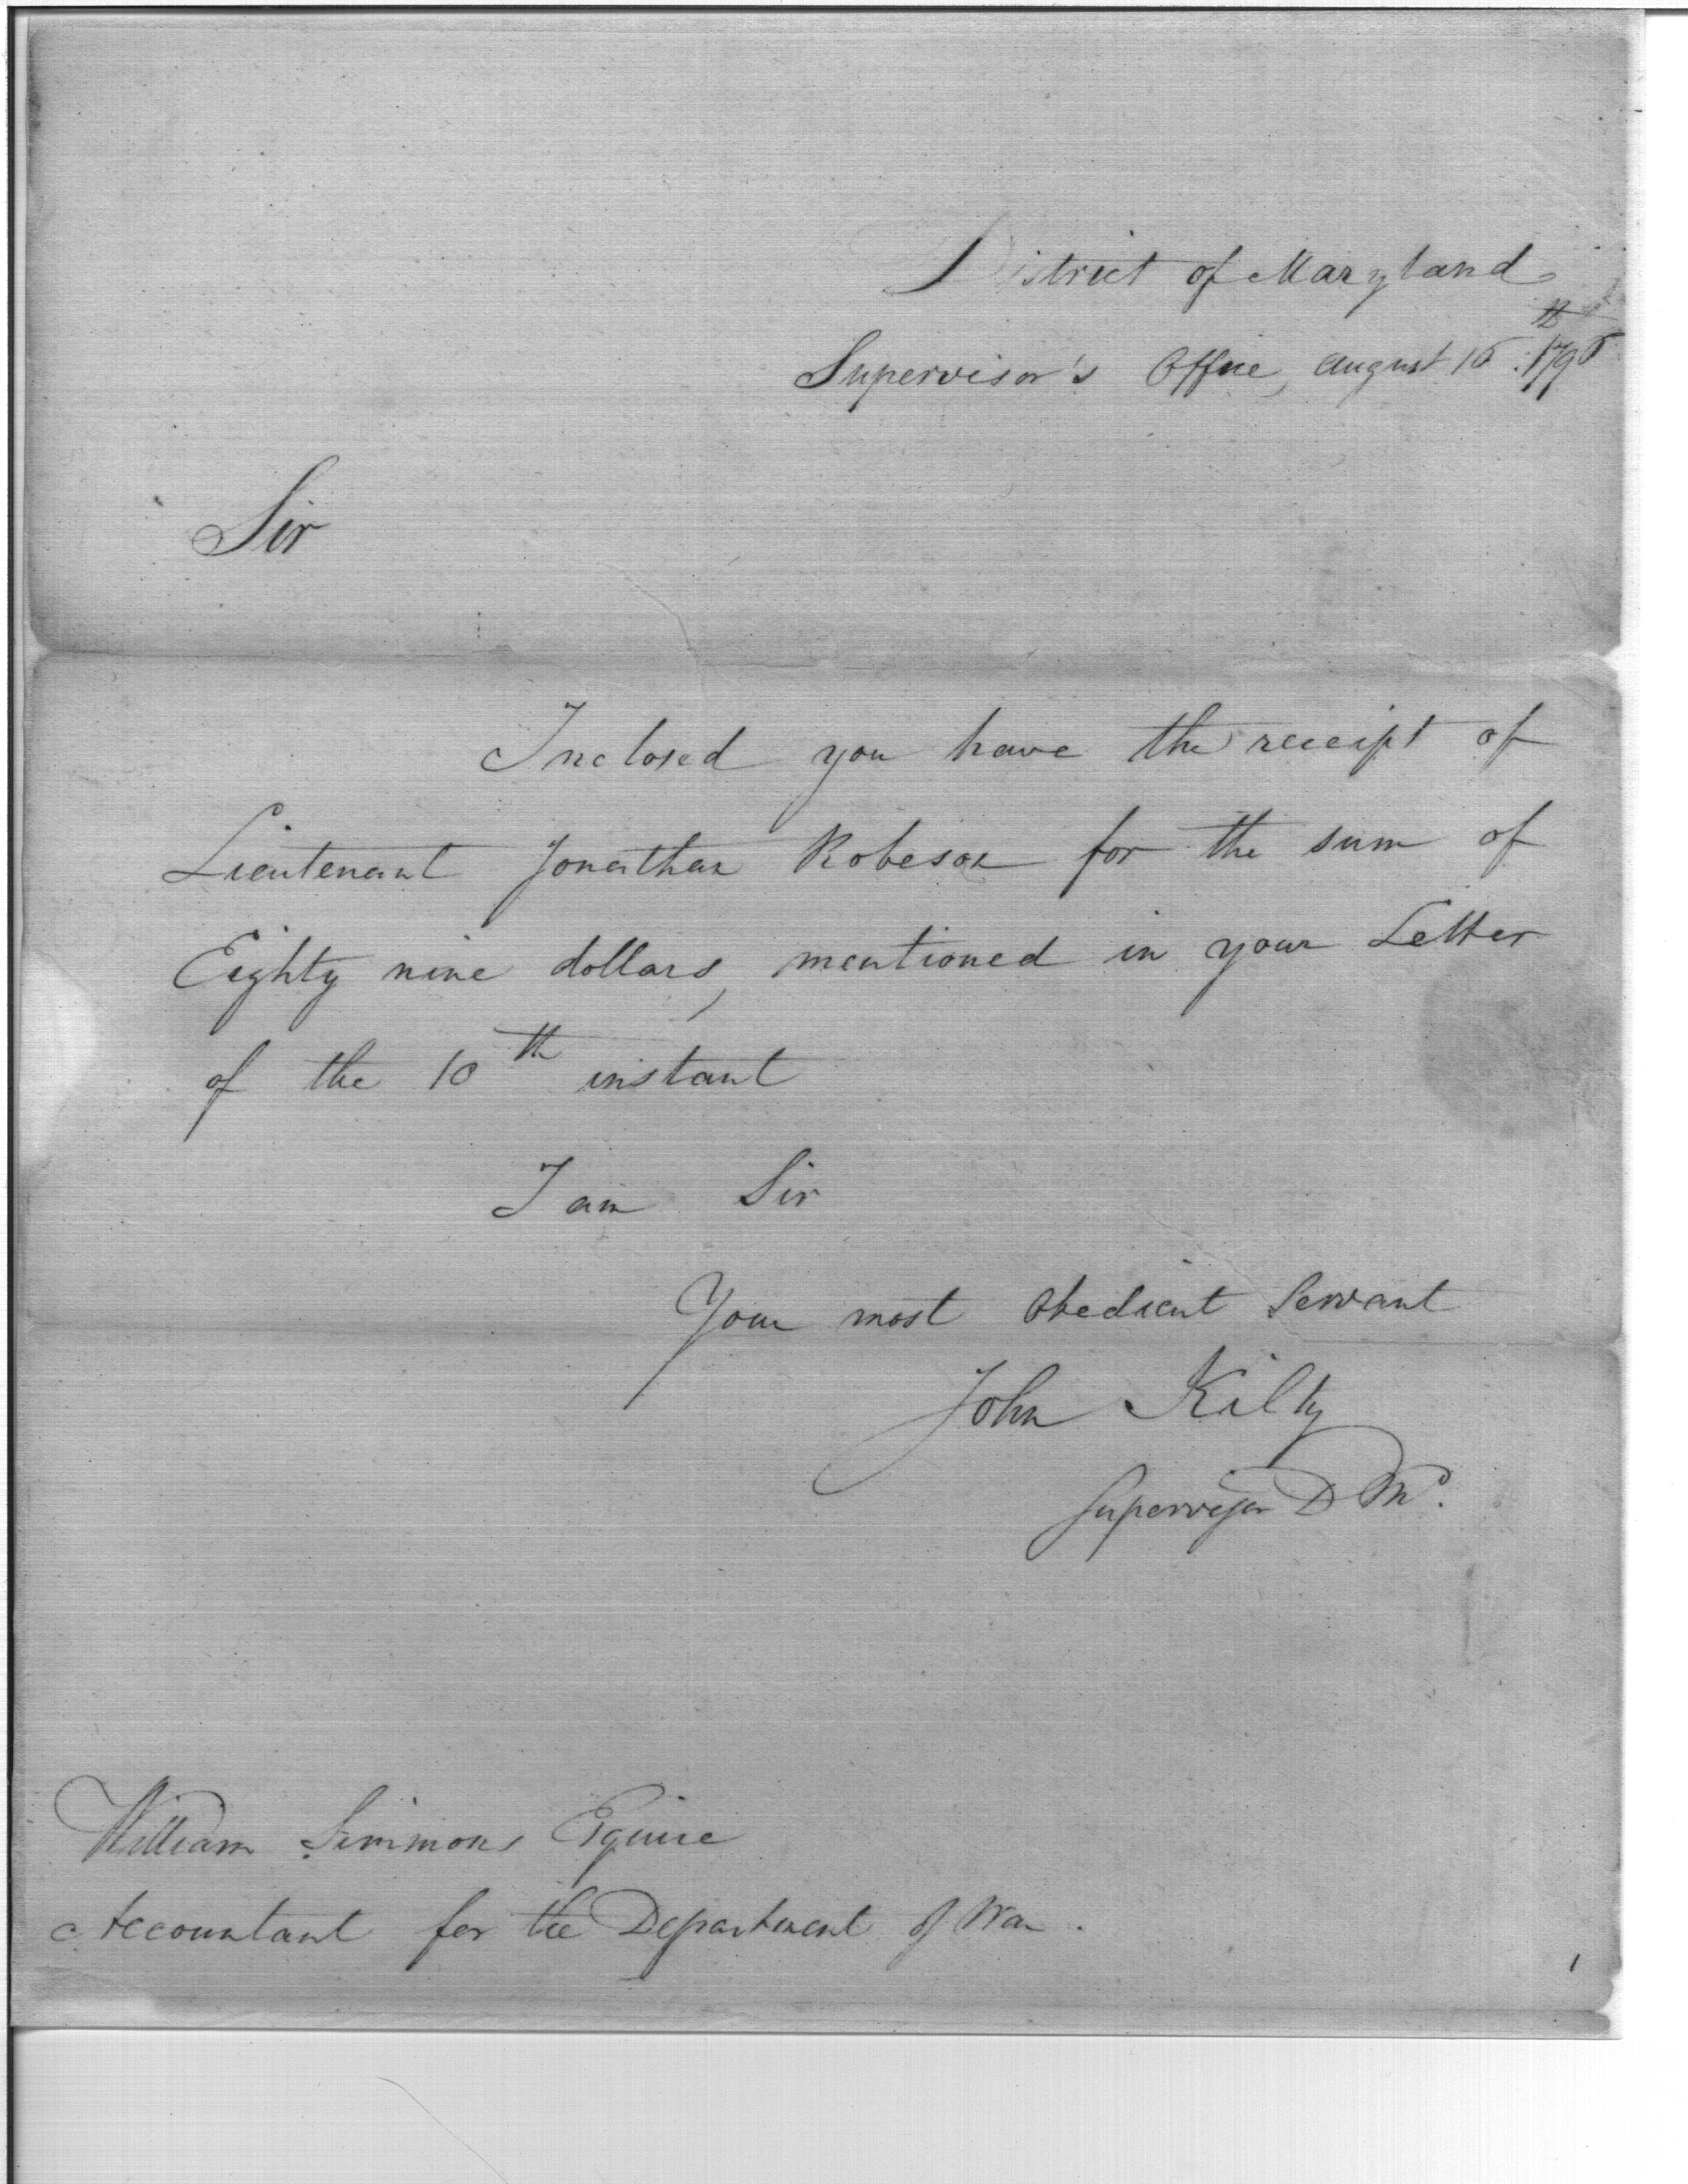 District of Maryland
Supervisor's Office, August 16th 1796
Sir
Inclosed you have the receipt of
Lieutenant Jonathan Robeson for the sum of
Eighty nine dollars, mentioned in your Letter
of the 10th instant
I am Sir
Your most Obedient Servant
John Kilty
Supervisor D Md.
William Simmons Esquire
Accountant for the Department of War.
1